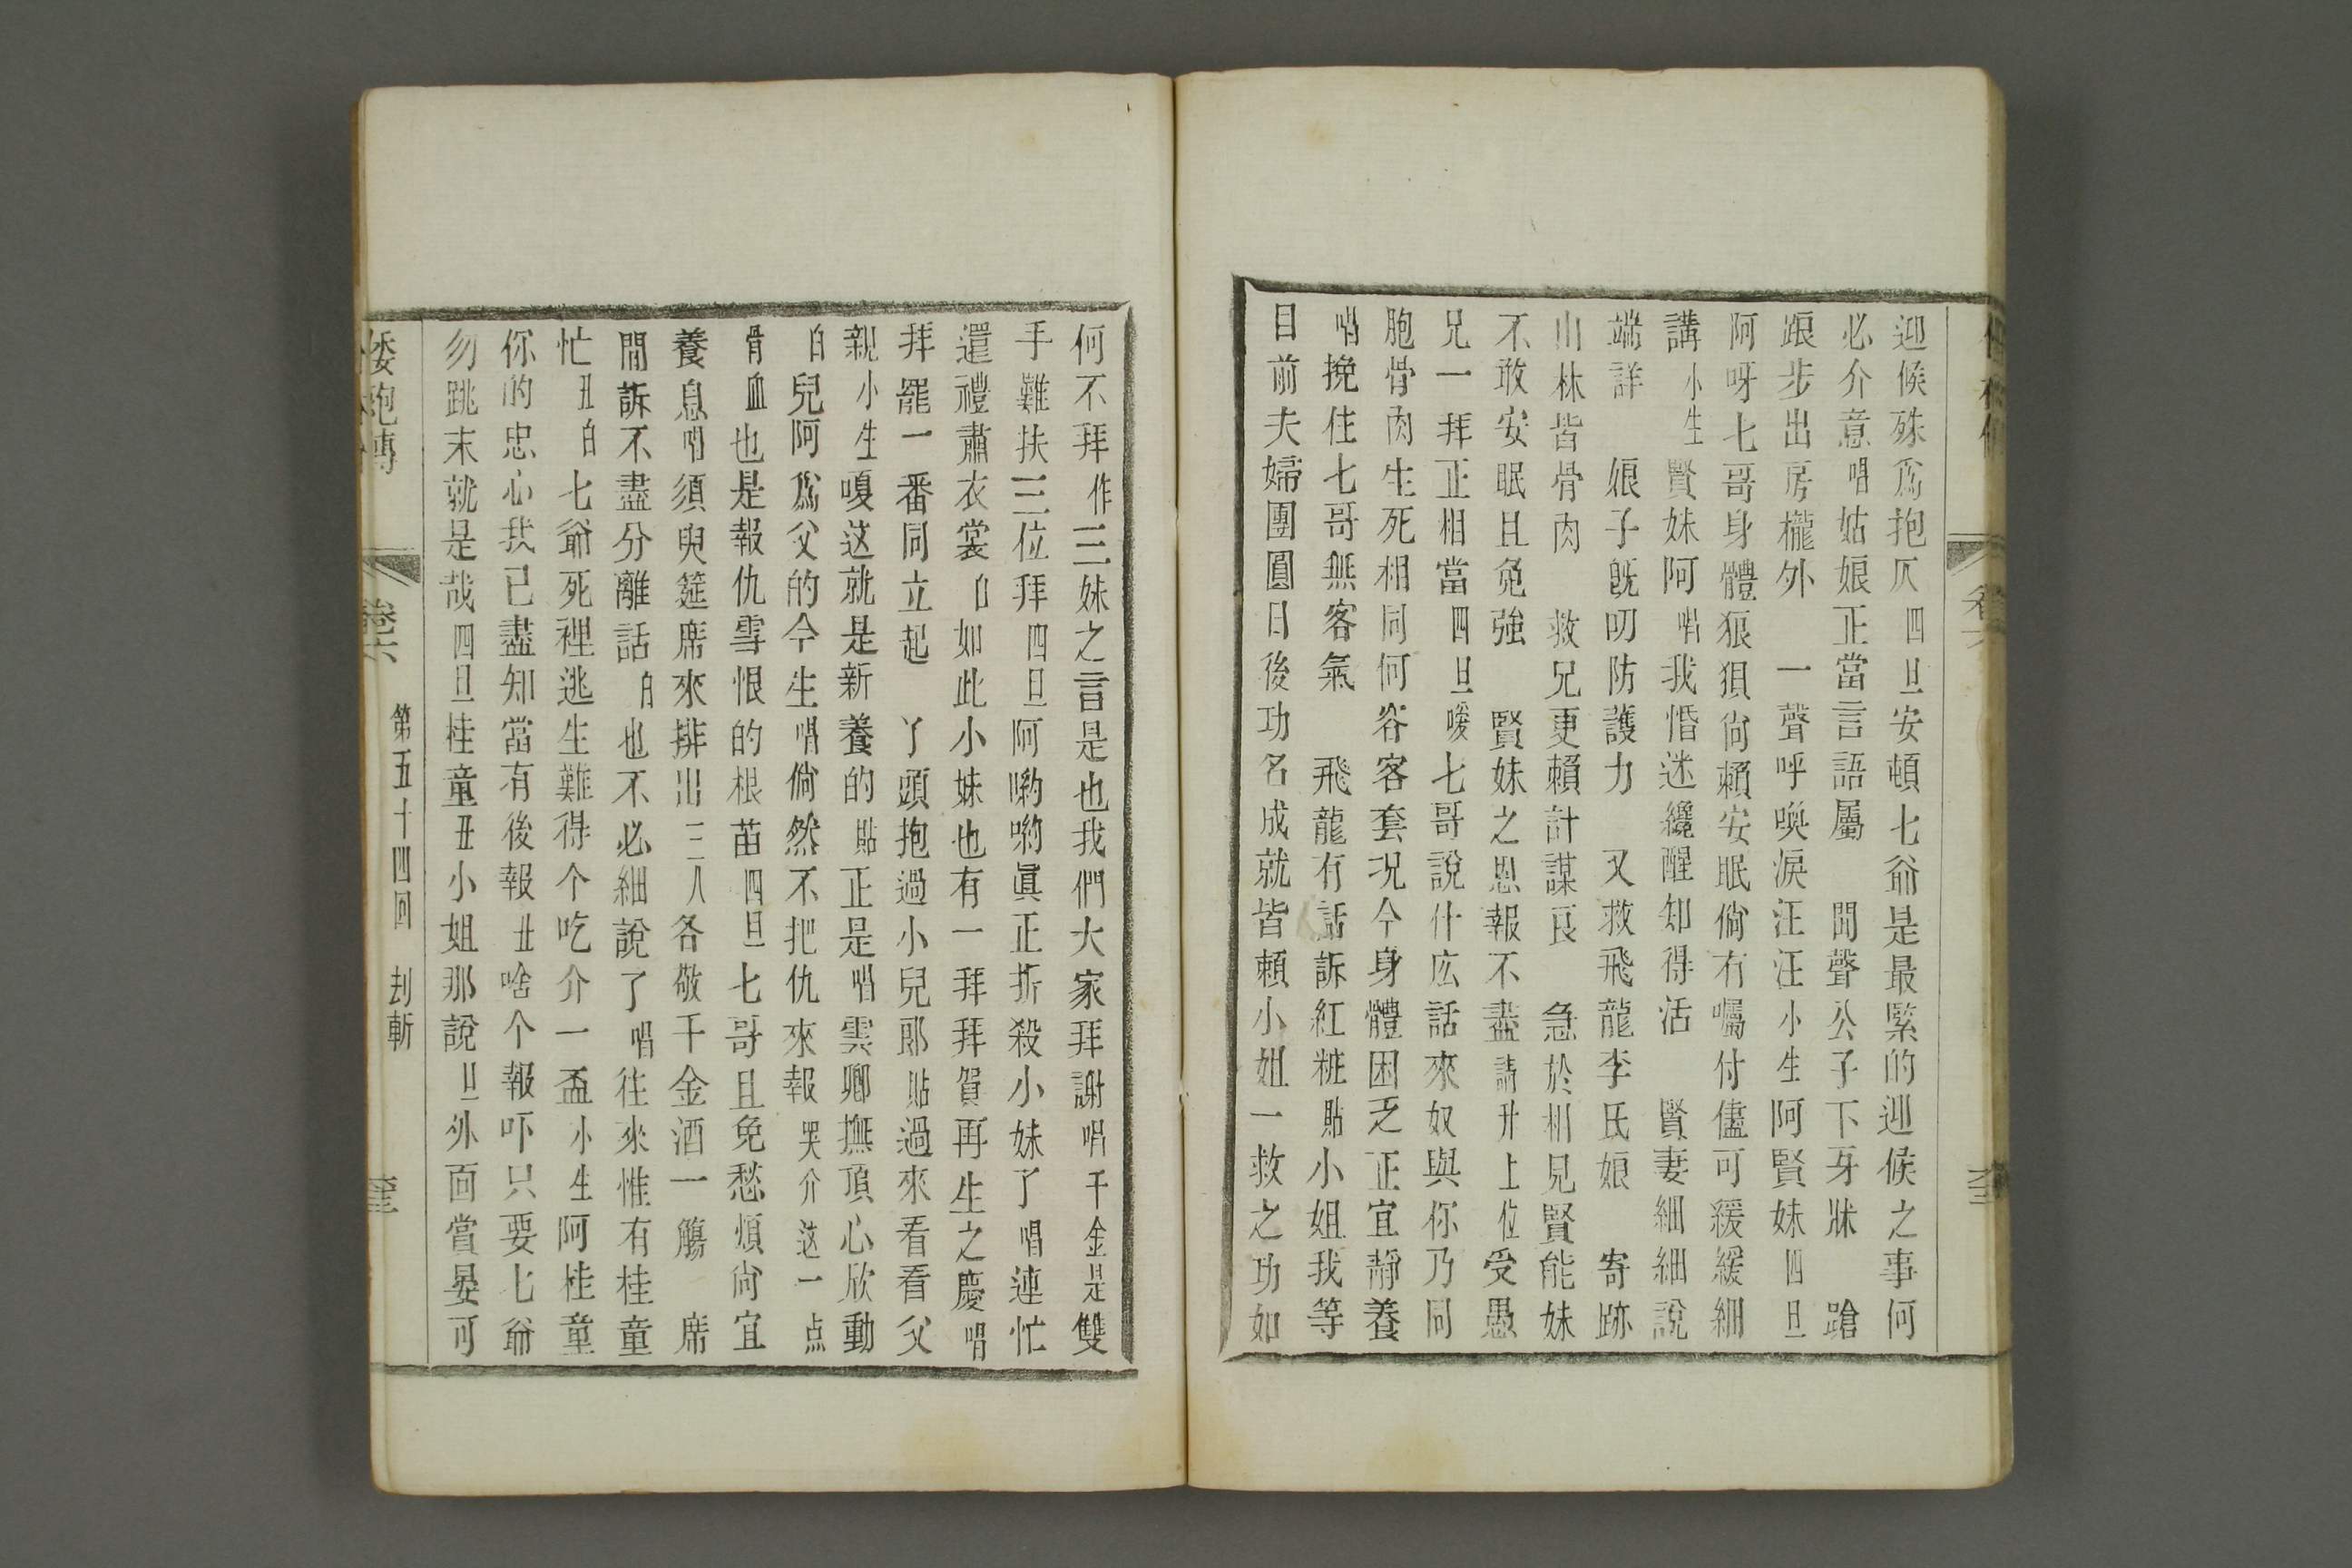 迎候殊爲抱仄四旦安頓七爺是最緊的迎候之事何
必介意唱姑娘正當言語屬　聞聲公子下牙牀　蹌
跟步出房櫳外　一聲呼喚淚汪汪小生阿賢妹四旦
阿呀七哥身體狼狽尙賴安眠倘有囑付儘可緩緩細
講小生賢妹阿唱我惛迷纔醒知得活　賢妻細細說
端詳　娘子旣叨防護力　又救飛龍李氏娘　寄跡
山林皆骨肉　救兄更賴計謀良　急於相見賢能妹
不敢安眠且免強　賢妹之恩報不盡請升上位受愚
兄一拜正相當四旦嗳七哥說什広話來奴與你乃同
胞骨肉生死相同何客套況今身體困乏正宜靜養
唱挽住七哥無客氣　飛龍有話訴紅粧貼小姐我等
目前夫婦團圓日後功名成就皆賴小姐一救之功如
何不拜作三妹之言是也我們大家拜謝唱千金是雙
手難扶三位拜四旦阿喲喲眞正折殺小妹了唱連忙
還禮肅衣裳白如此小妹也有一拜拜賀再生之慶唱
拜罷一番同立起　丫頭抱過小兒郎貼過來看看父
親小生嗄这就是新養的貼正是唱雲卿撫頂心欣動
白兒阿爲父的今生唱倘然不把仇來報哭介这一点
骨血也是報仇雪恨的根苗四旦七哥且免愁煩尙宜
養息唱須臾筵席來排出三人各敬千金酒一觴　席
間訴不盡分離話白也不必細說了唱往來惟有桂童
忙丑白七爺死裡逃生難得个吃介一盃小生阿桂童
你的忠心我已盡知當有後報丑啥个報吓只要七爺
勿跳末就是哉四旦桂童丑小姐那說旦外面賞晏可
倭袍傳　卷六　第五十四回　刦斬